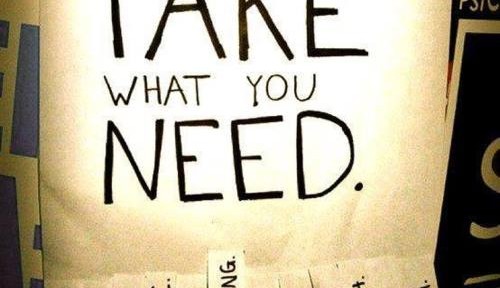 TAKE
WHAT YOU
NEED.
NG.
PSYC